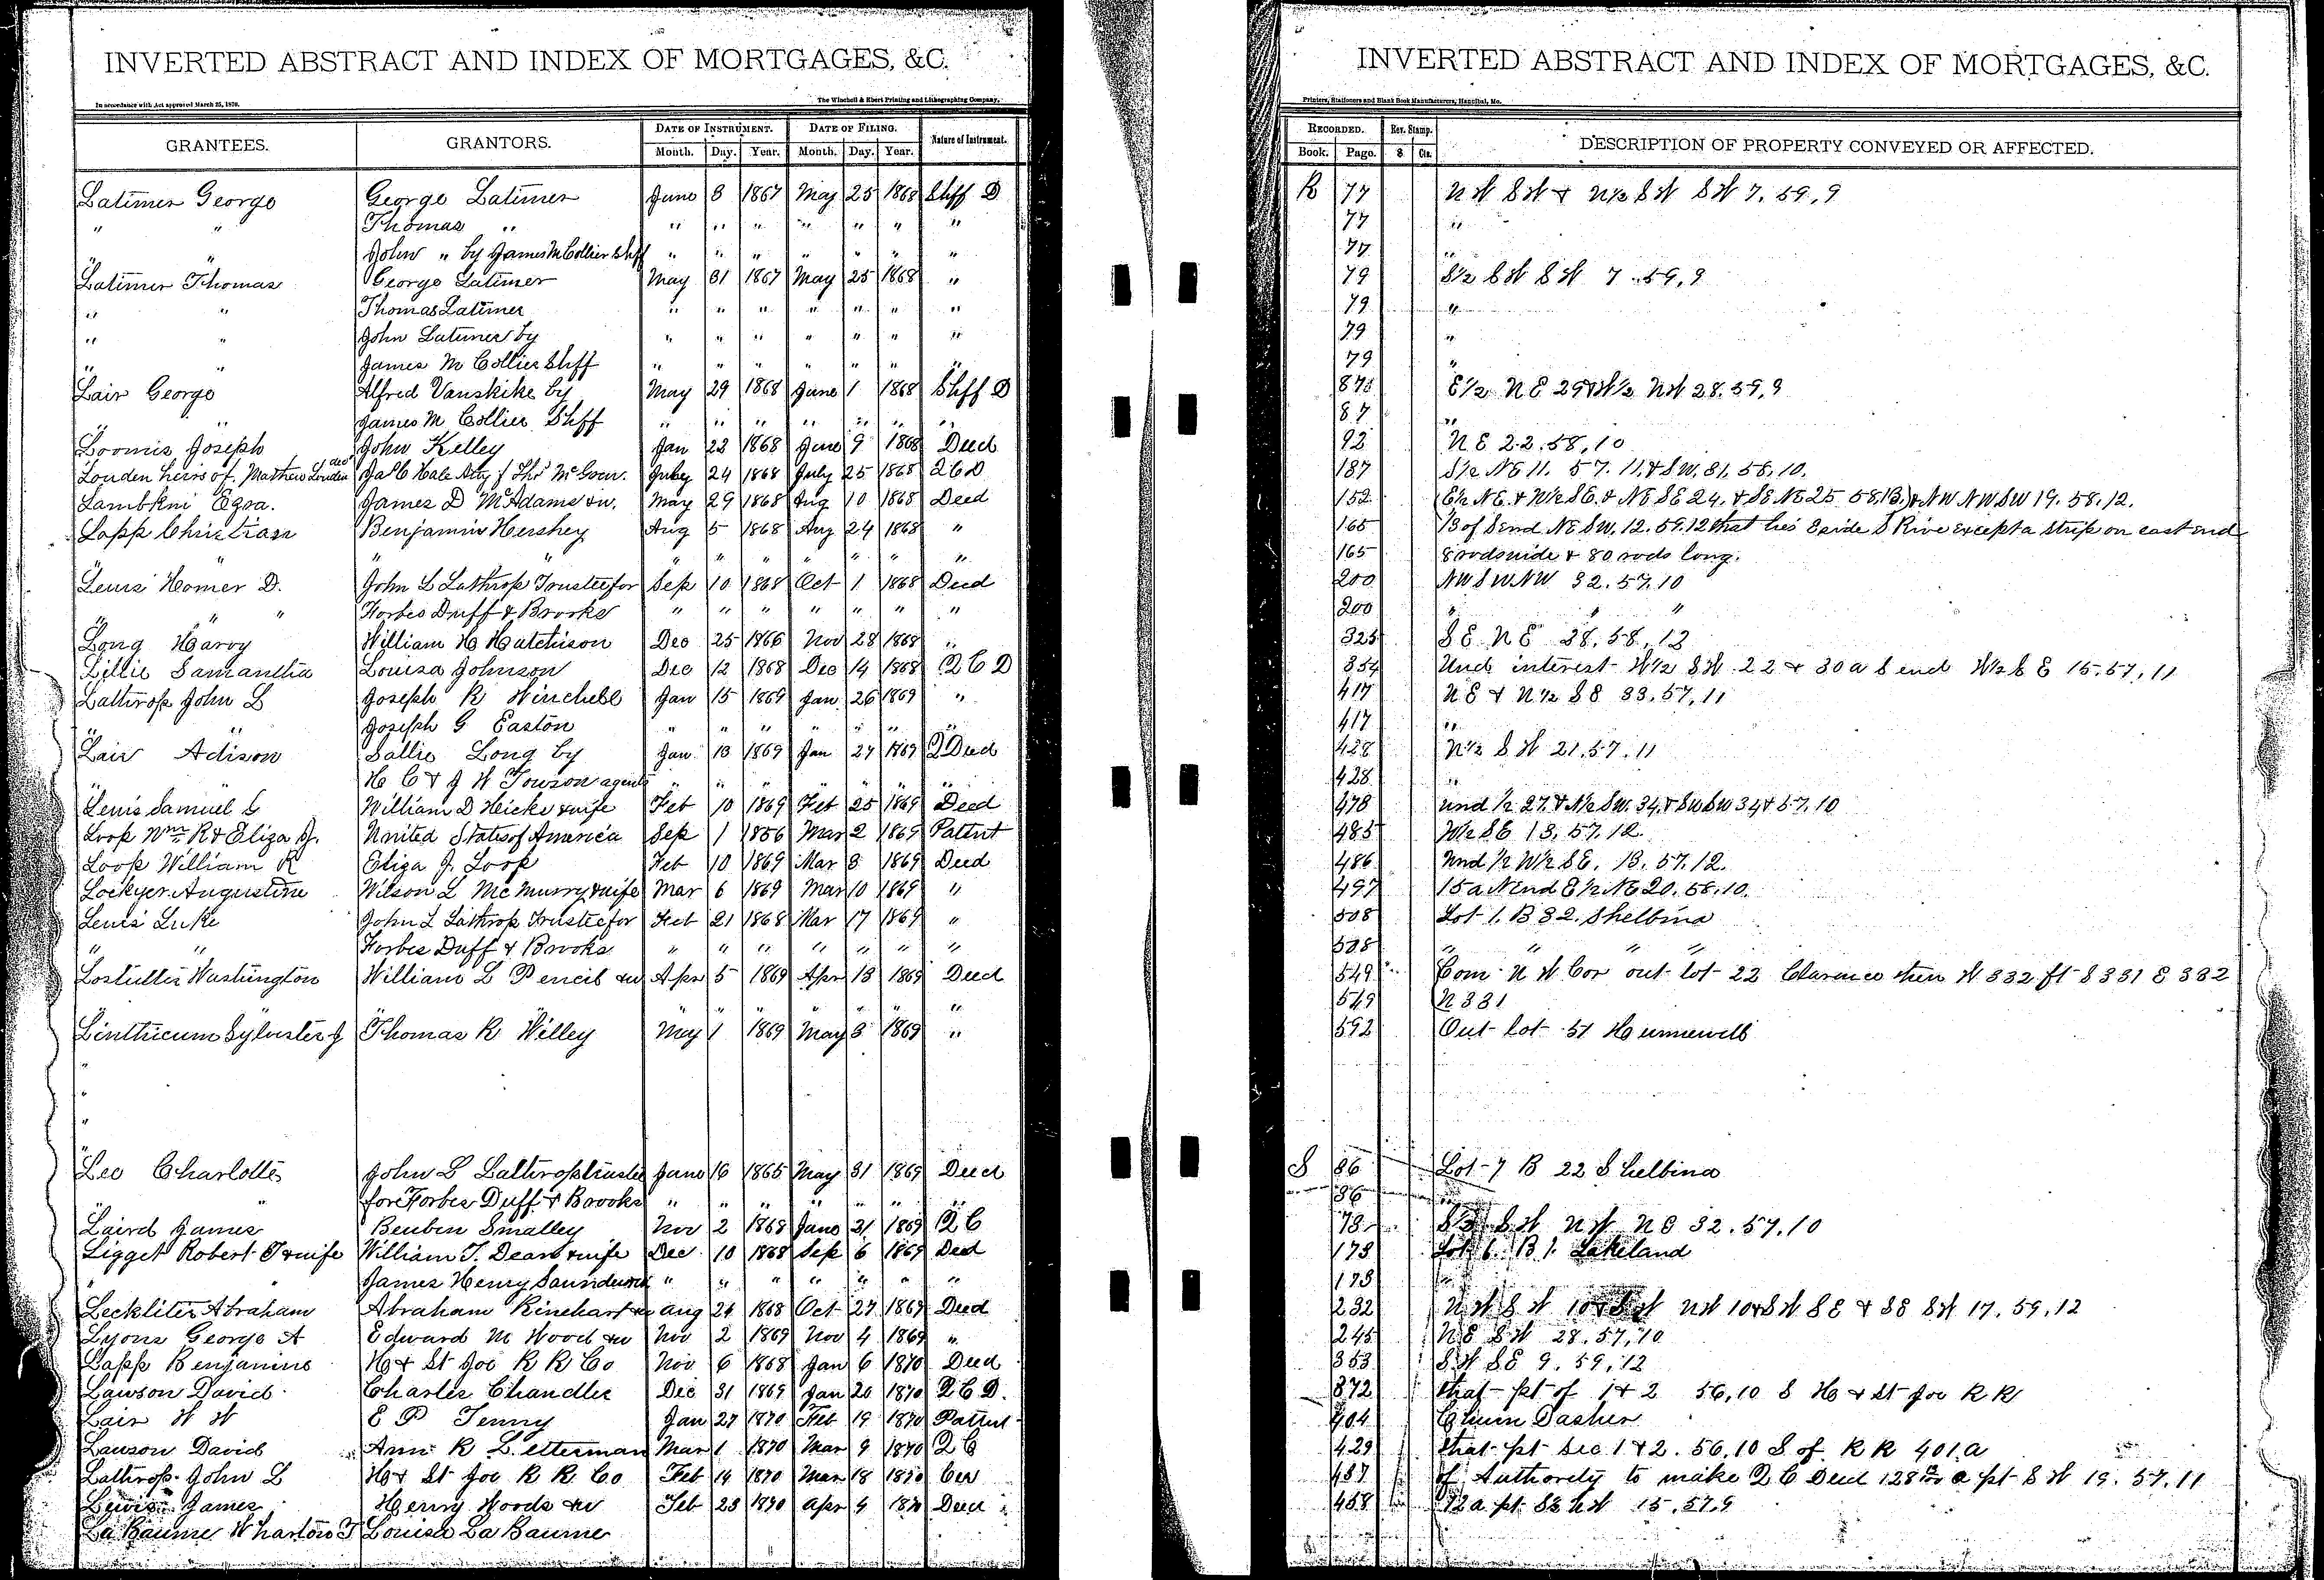 INVERTED ABSTRACT AND INDEX OF MORTGAGES, &C.
In accordance with Act approved March 25, 1870.
The Winchell & Ebert Printing and Lithographing Company,
GRANTEES. GRANTORS. DATE OF INSTRUMENT. DATE OF FILING. Nature of Instrument.
Month. Day. Year. Month. Day. Year.
Latimer George George Latimer June 8 1867 May 25 1868 Shff D
" " Thomas " " " " " " " "
" " John " by James M Collier Shff " " " " " " "
Latimer Thomas George Latimer May 31 1867 May 25 1868 "
" " Thomas Latimer " " " " " " "
" " John Latimer by " " " " " " "
" " James M Collier Shff " " " " " " "
Lair George Alfred Vanskike by May 29 1868 June 1 1868 Shff D
" " James M Collier Shff " " " " " "
Loomis Joseph John Kelley Jan 22 1868 June 9 1868 Deed
Louden heirs of Mathew Louden decd Jas C Hale Atty of Thos McGovr. July 24 1868 July 25 1868 Q C D
Lambkni Egra. James D McAdams & w. May 29 1868 Aug 10 1868 Deed
Lapp Christian Benjamin Hershey Aug 5 1868 Aug 24 1868 "
" " " " " " " "
Lewis Homer D. John L Lathrop Trustee for Sep 10 1868 Oct 1 1868 Deed
" " Forbes Duff & Brooks " " " " " " "
Long Harvy William H Hutchison Dec 25 1866 Nov 28 1868 "
Lillie Samantha Louisa Johnson Dec 12 1868 Dec 14 1868 Q C D
Lathrop John L Joseph R Winchell Jan 15 1869 Jan 26 1869 "
" " Joseph G Easton " " " " " " "
Lair Adison Sallie Long by Jan 13 1869 Jan 27 1869 Q Deed
" H C & J W Towson agents " " " " " " "
Lewis Samuel S William D Hicks & wife Feb 10 1869 Feb 25 1869 Deed
Loop Wm R & Eliza J. United States of America Sep 1 1856 Mar 2 1869 Pattent
Loop William R Eliza J. Loop Feb 10 1869 Mar 8 1869 Deed
Lockyer Augustine Wilson L McMurry & wife Mar 6 1869 Mar 10 1869 "
Lewis Luke John L Lathrop Trustee for Feb 21 1868 Mar 17 1869 "
" " Forbes Duff & Brooks " " " " " " "
Lostutter Washington William L Pencil & w Apr 5 1869 Apr 13 1869 Deed
" " " " " " " " "
Linthicum Sylvester J Thomas R Willey May 1 1869 May 3 1869 "
"
"
"
Lee Charlotte John L Lathrop trustee June 16 1865 May 31 1869 Deed
" " for Forbes Duff & Brooks " " " " " " "
Laird James Reuben Smalley Nov 2 1868 June 21 1869 Q C
Ligget Robert T & wife William T. Dean & wife Dec 10 1868 Sep 6 1869 Deed
" " James Henry Saunders " " " " " " "
Leckliter Abraham Abraham Rinehart & w Aug 24 1868 Oct 27 1869 Deed
Lyons George A Edward M Wood & w Nov 2 1869 Nov 4 1869 "
Lapp Benjamine H & St Joe R R Co Nov 6 1868 Jan 6 1870 Deed
Lawson David Charles Chandler Dec 31 1869 Jan 20 1870 Q C D.
Lair W W E P Tenny Jan 27 1870 Feb 19 1870 Pattent
Lawson David Ann R Letterman Mar 1 1870 Mar 9 1870 Q C
Lathrop John L H & St Joe R R Co Feb 14 1870 Mar 18 1870 Cer
Lewis James Henry Woods & w Feb 23 1870 Apr 4 1870 Deed
La Baume Wharton T Louisa La Baume
INVERTED ABSTRACT AND INDEX OF MORTGAGES, &C.
Printers, Stationers and Blank Book Manufacturers, Hannibal, Mo.
RECORDED. Rev. Stamp. DESCRIPTION OF PROPERTY CONVEYED OR AFFECTED.
Book. Page. $ Cts.
R 77 N W S W & N 1/2 S W S W 7. 59, 9
77 "
77 "
79 S 1/2 S W S W 7. 59, 9
79 "
79 "
79 "
87 E 1/2 N E 29 & W 1/2 N W 28. 59, 9
87 "
92 N E 22. 58, 10
137 S 1/2 N E 11. 57. 11, & S W. 31. 58. 10.
152 (E 1/2 N E. & W 1/2 S E. & N E S E 24. & S E. N E 25. 58. 13.) & N W N W S W 19. 58. 12.
165 B of S end N E S W. 12. 59. 12 that lies E side S Rive except a strip on east end
165 8 rods wide & 80 rods long.
200 N W S W N W 32. 57. 10
200 " " "
325 S E N E 28. 58, 13
354 Und interest W 1/2 S W 22 & 30 a S end W 1/2 S E 15. 57, 11
417 N E & N 1/2 S E 33. 57, 11
417 "
428 N 1/2 S W 21. 57. 11
428 "
478 Und 1/2 27. & N 1/2 S W. 34. & S W S W 34 & 57. 10
485 W 1/2 S E 13. 57. 12.
486 Und 1/2 W 1/2 S E. 13. 57. 12.
497 15 a N end E 1/2 N E 20. 58. 10.
508 Lot 1. B 32. Shelbina
508 " " " "
549 Com N W Cor out lot 22 Clarence then W 332 ft S 331 E 332
549 N 331
592 Out Lot 51 Hunnewell
S 86 Lot 7 B 22 Shelbina
86 "
78 S W N W N E 32. 57. 10
173 Lot 6 B 1. Lakeland
173 "
232 N W S W 10 & S W N W 10 & S W S E & S E S W 17. 59, 12
245 N E S W 28. 57, 10
353 S W S E 9. 59, 12
372 that pt of 1 & 2 56, 10 S H & St Joe R R
404 Churn Dasher
429 that pt Sec 1 & 2. 56. 10 S of R R 401. a
457 of Authority to make Q C Deed 128 a pt S W 19. 57. 11
458 12 a pt N W 15. 57. 9